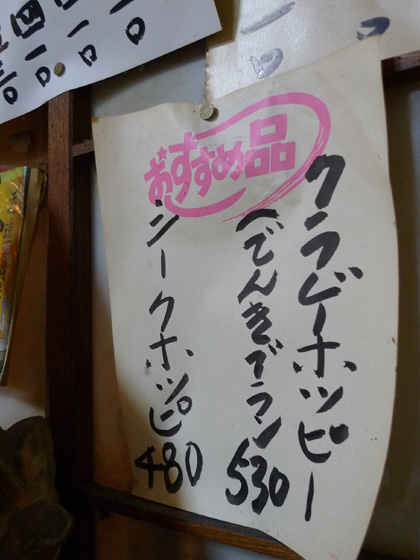 おすすめ品
クラビーホッピー
(でんきブラン 530
シークホッピ 480